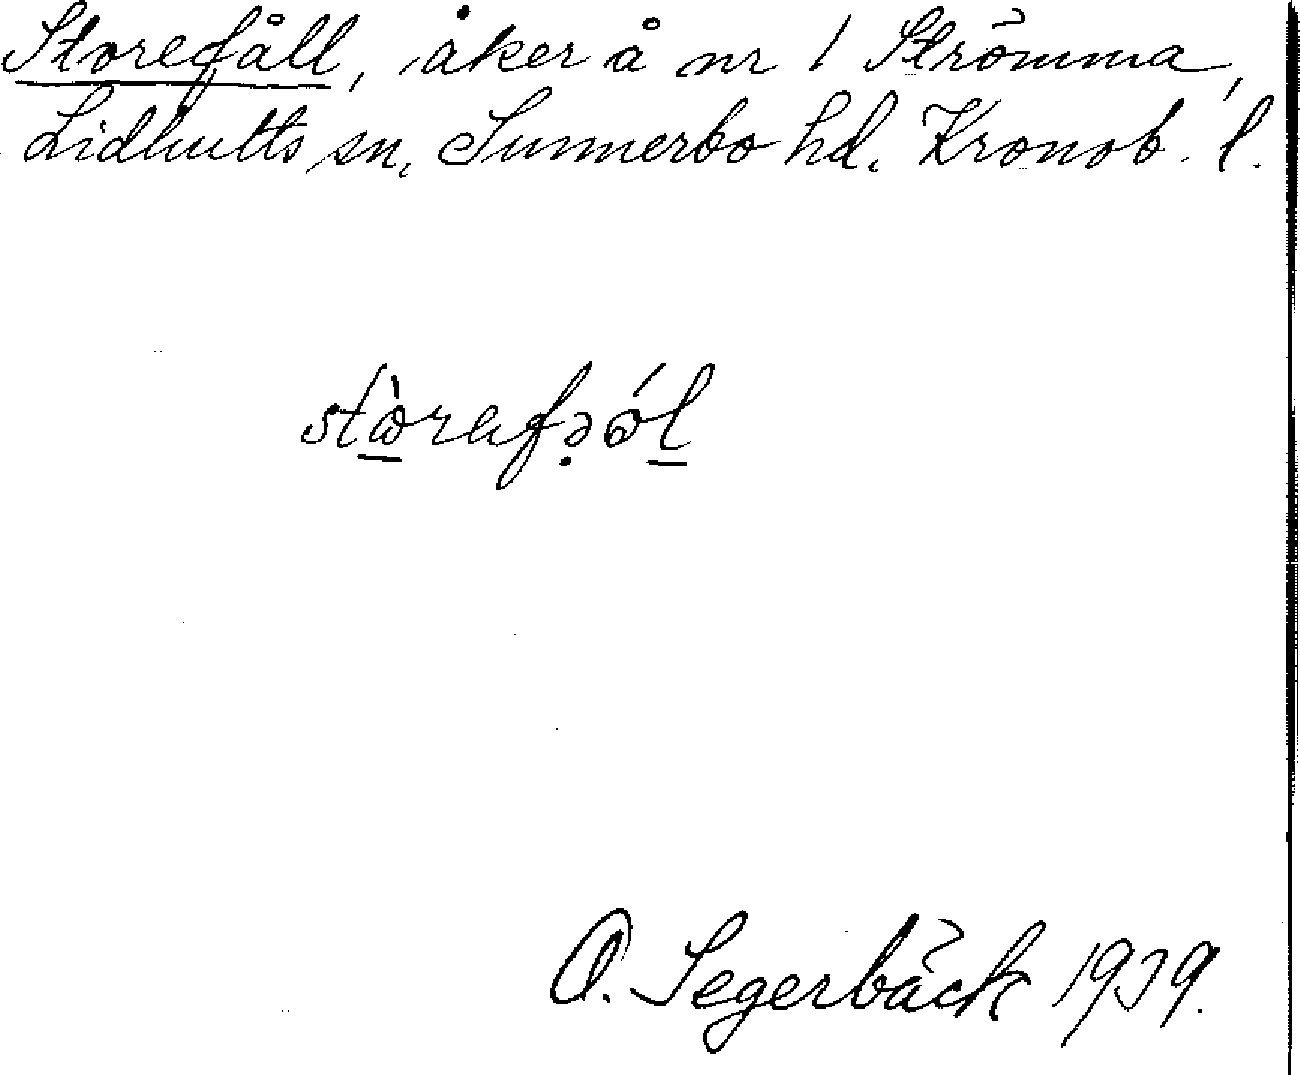 Storefåll, åker å nr 1 Strömma,
Lidhults sn, Sunnerbo hd. Kronob. l.
O. Segerbäck 1939.